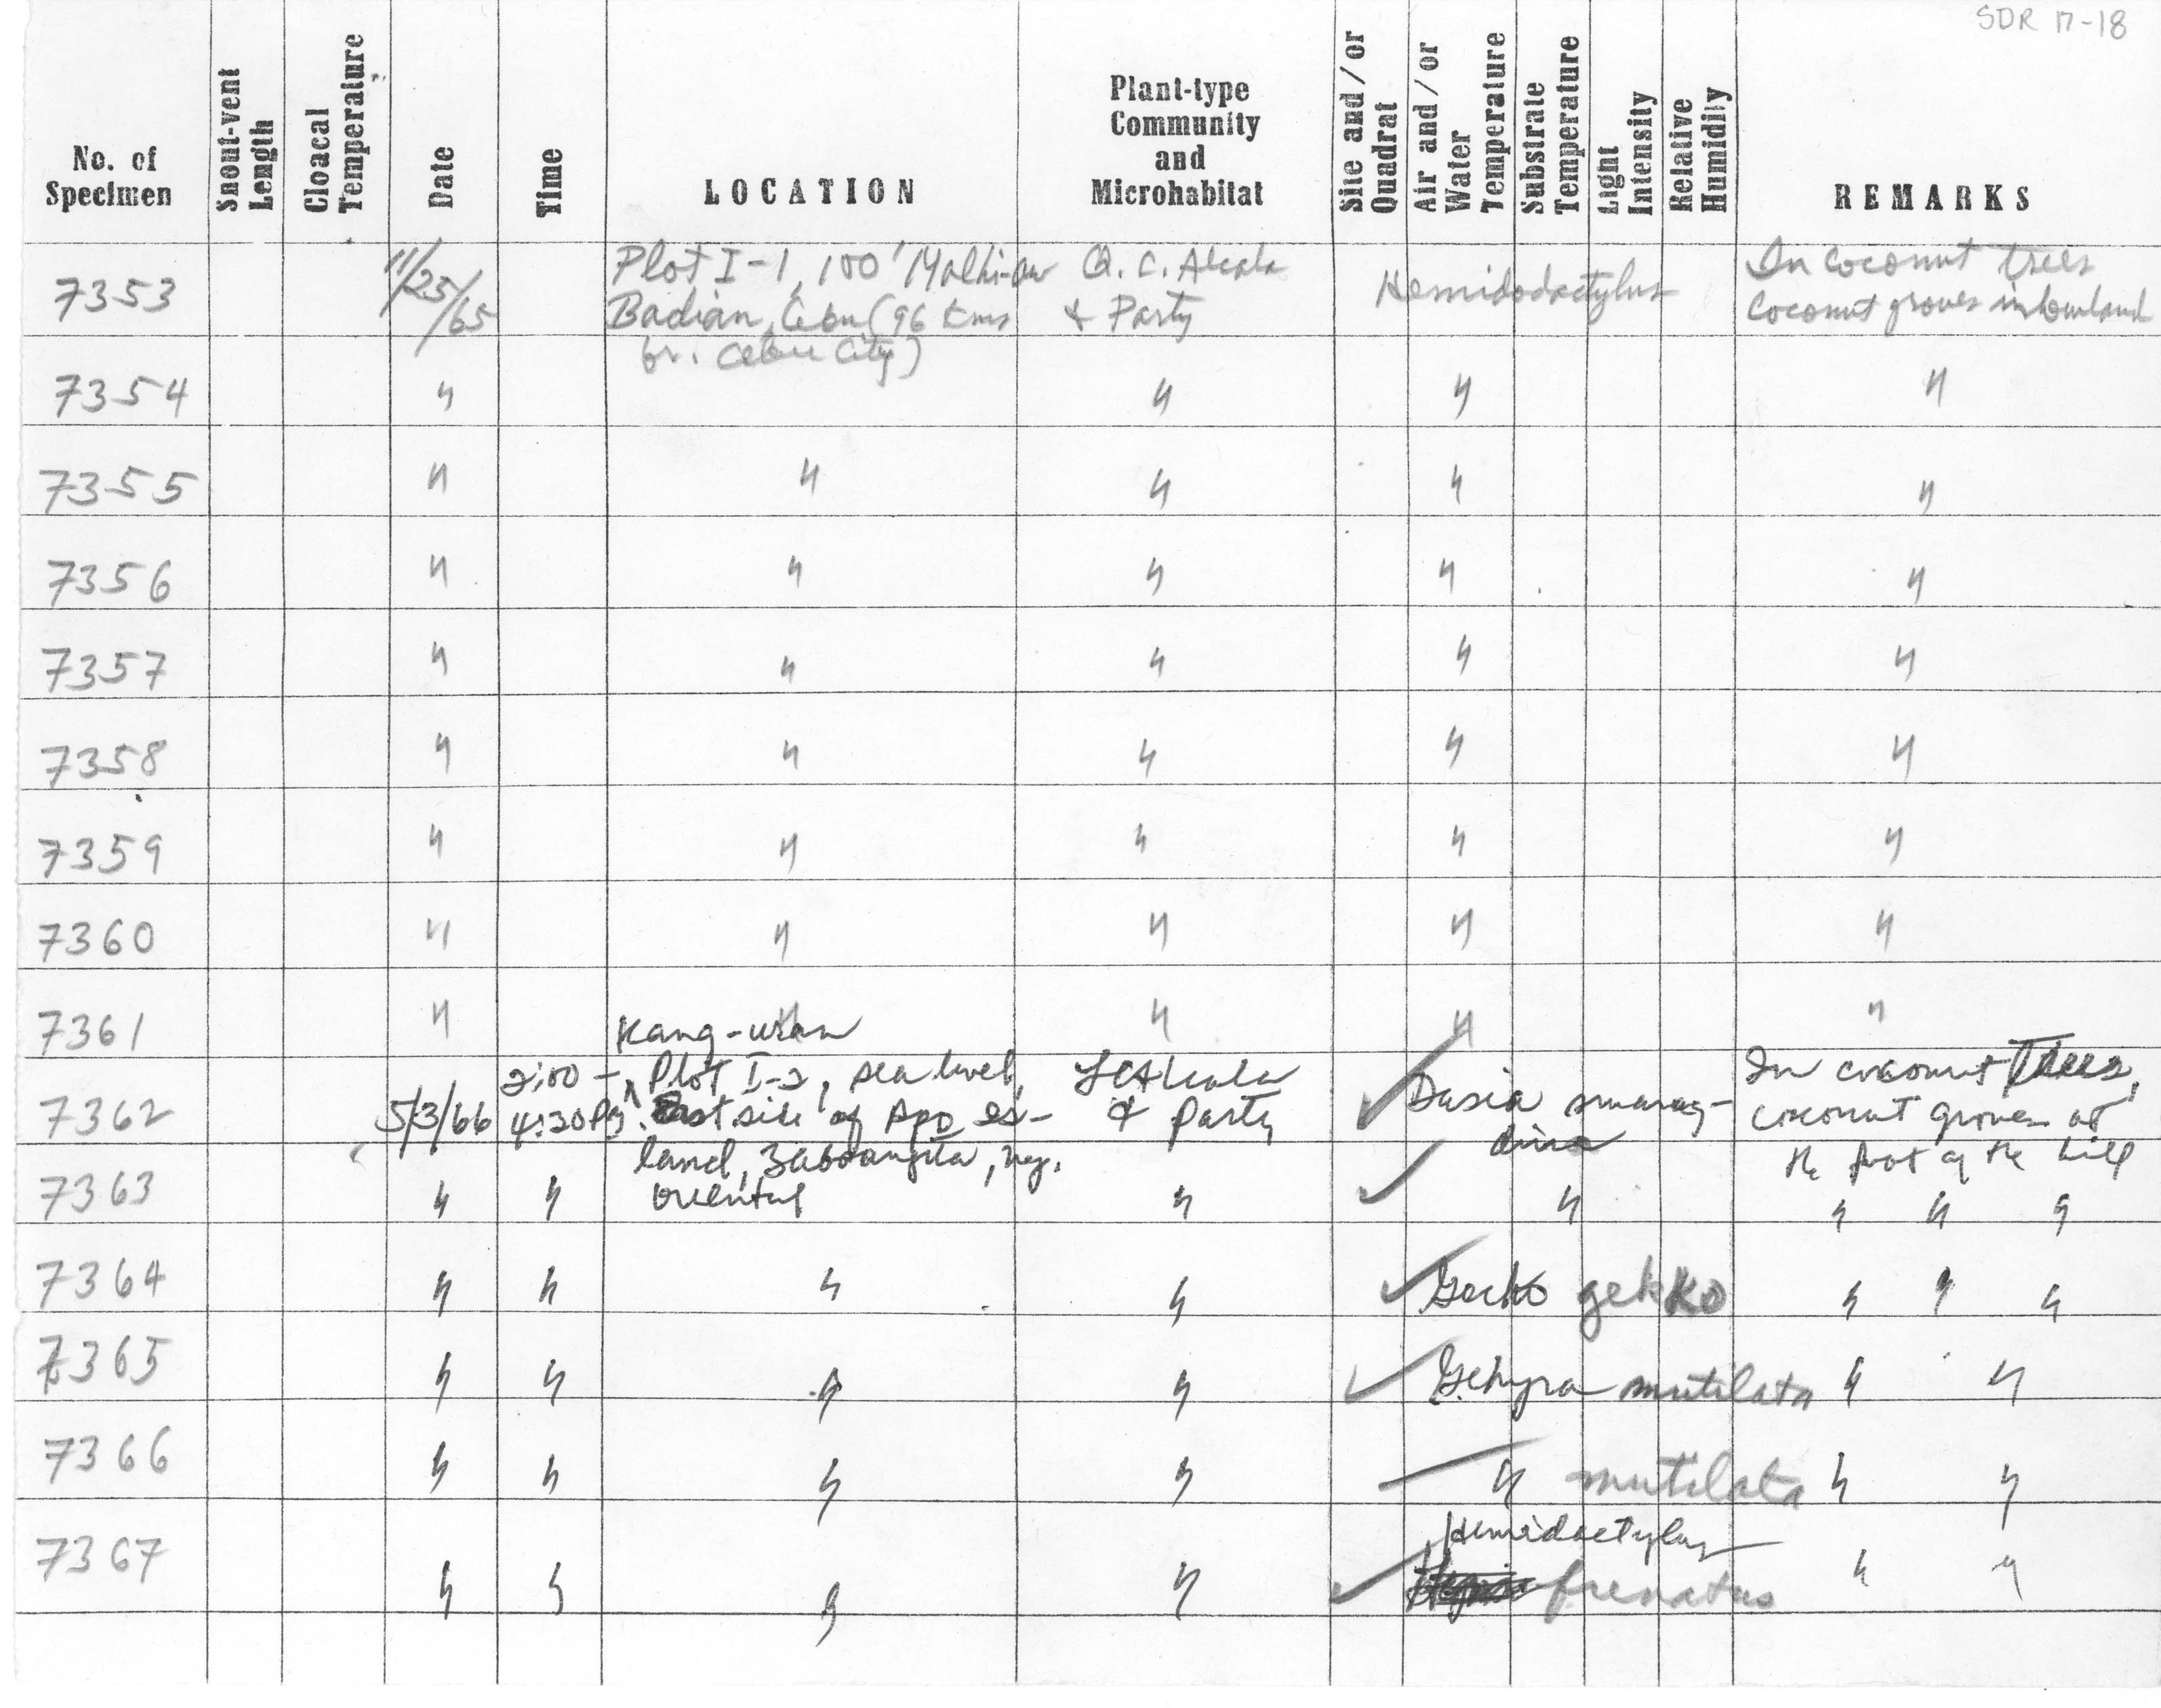 SDR 17-18
No. of Specimen | Snout-vent Length | Cloacal Temperature | Date | Time | LOCATION | Plant-type Community and Microhabitat | Site and/or Quadrat | Air and/or Water Temperature | Substrate Temperature | Light Intensity | Relative Humidity | REMARKS
7353 11/23/65 Plot I-1, 100' Malhi-aw Q. C. Alcala Hemidodactylus In coconut trees
Badian, Cebu (96 kms & Party Coconut groves in lowland
fr. Cebu City)
7354 " " " "
7355 " " " " "
7356 " " " " "
7357 " " " " "
7358 " " " " "
7359 " " " " "
7360 " " " " "
7361 " " " " "
Kang-wan
2:00 – Plot I-2, sea level, LCAlcala In coconut Trees,
7362 5/3/66 4:30 PM East side of Apo Is- & Party Dasia smarag- coconut groves at
land, Zaboanguita, Neg. dina the foot of the hill
7363 " " Oriental " " " " "
7364 " " " " Gecko gekko " " "
7365 " " " " Gehyra mutilata " "
7366 " " " " " mutilata " "
Hemidactylus
7367 " " " " frenatus " "